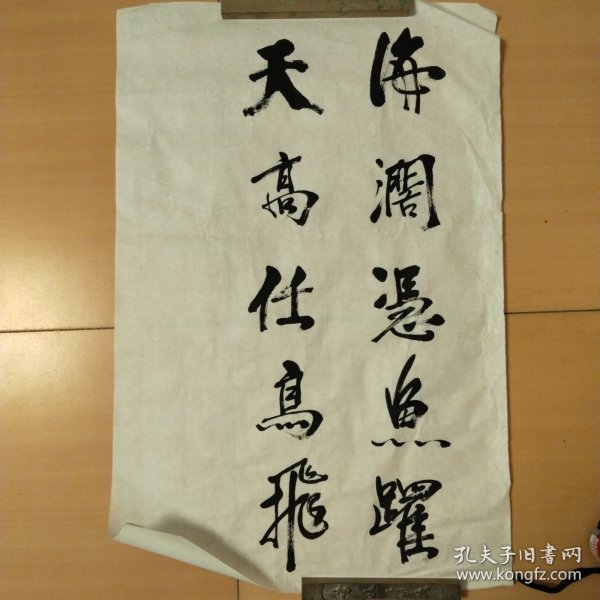 海濶憑魚躍
天高任鳥飛
孔夫子旧書网
www.kongfz.com